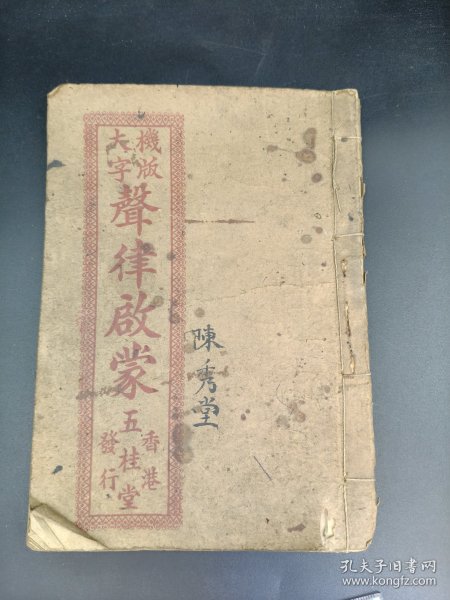 機版
大字
聲律啟蒙
香港
五桂堂
發行
陳秀堂
孔夫子旧书网
www.kongfz.com